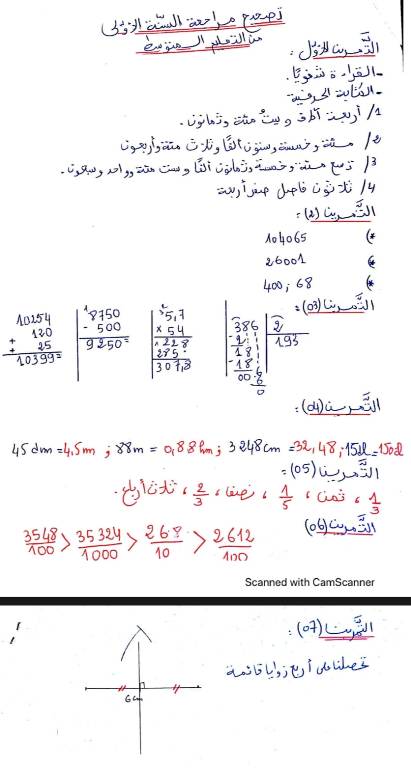 تصحيح مراجعة السنة الأولى
من التعليم المتوسط
التّمرين الأوّل:
-القراءة شفويا.
-الكتابة الحرفية
1/ أربعة آلاف و مئة وثمانون.
2/ مئة وخمسة وستون ألفا وثلاث مئة وأربعون
3/ تسع مئة وخمسة وثمانون ألفا وست مئة وواحد وسبعون.
4/ ثلاثون فاصل صفر أربعة
التّمرين (2):
104065 (*
26001 (*
400,68 (*
التّمرين (03):
10254
+ 120
+ 25
10399=
8750
- 500
9250=
5,7
x 54
228
285·
307,8
386 2
- 2 193
18
- 18
00 6
6
0
التّمرين (04):
45dm=4,5m ; 88m = 0,88hm ; 3248cm =32,48 ; 15dal=150dl
التّمرين (05):
1/3 ، ثمن ، 1/5 ، نصف ، 2/3 ، ثلاث أرباع.
التّمرين (06)
3548/100 > 35324/1000 > 268/10 > 2612/100
Scanned with CamScanner
التّمرين (07):
تحصلنا على أربع زوايا قائمة
6cm